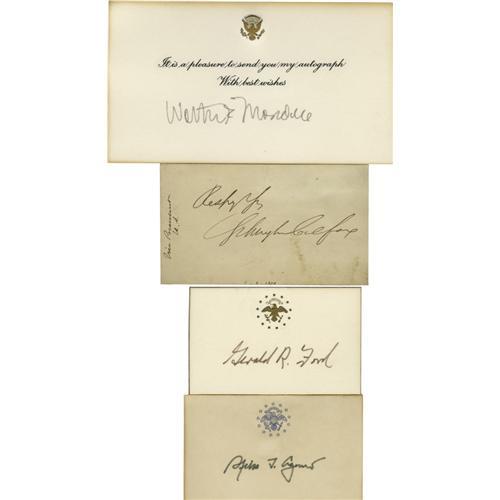 It is a pleasure to send you my autograph
With best wishes
Walter F Mondale
Vice President
U.S.
Respy Yrs
Schuyler Colfax
Gerald R. Ford
Spiro T. Agnew